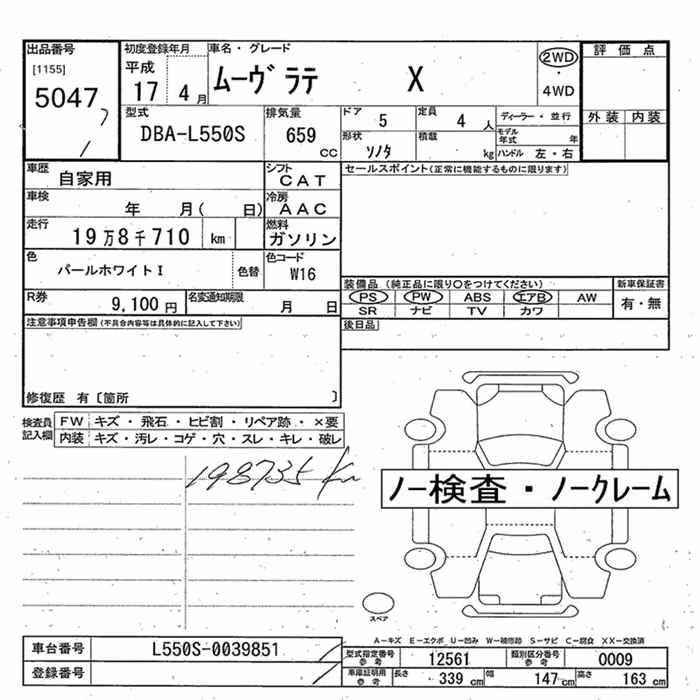 出品番号
[1155]
5047
初度登録年月
平成
17 4月
車名・グレード
ムーヴ ラテ X
2WD
・
4WD
評価点
外装 内装
型式
DBA-L550S
排気量
659
CC
ドア 5
定員 4 人
形状 ソノタ
積載 kg
ディーラー・並行
モデル年式 年
ハンドル 左・右
車歴
自家用
シフト
CAT
セールスポイント(正常に機能するものに限ります)
車検
年 月( 日)
冷房
AAC
走行
19万8千710 km
燃料
ガソリン
色
パールホワイトI
色替
色コード
W16
装備品 (純正品に限り○をつけてください)
新車保証書
PS PW ABS エアB AW
有・無
SR ナビ TV カワ
R券
9,100円
名変通知期限
月 日
後日品
注意事項申告欄(不具合内容等は具体的に記入して下さい)
修復歴 有〔箇所 〕
検査員記入欄
FW キズ・飛石・ヒビ割・リペア跡・×要
内装 キズ・汚レ・コゲ・穴・スレ・キレ・破レ
198735 Km
ノー検査・ノークレーム
スペア
A-キズ E-エクボ U-凹み W-補修跡 S-サビ C-腐食 XX-交換済
車台番号 L550S-0039851
型式指定番号参考 12561
類別区分番号参考 0009
登録番号
車庫証明用参考 長さ 339 cm 幅 147 cm 高さ 163 cm